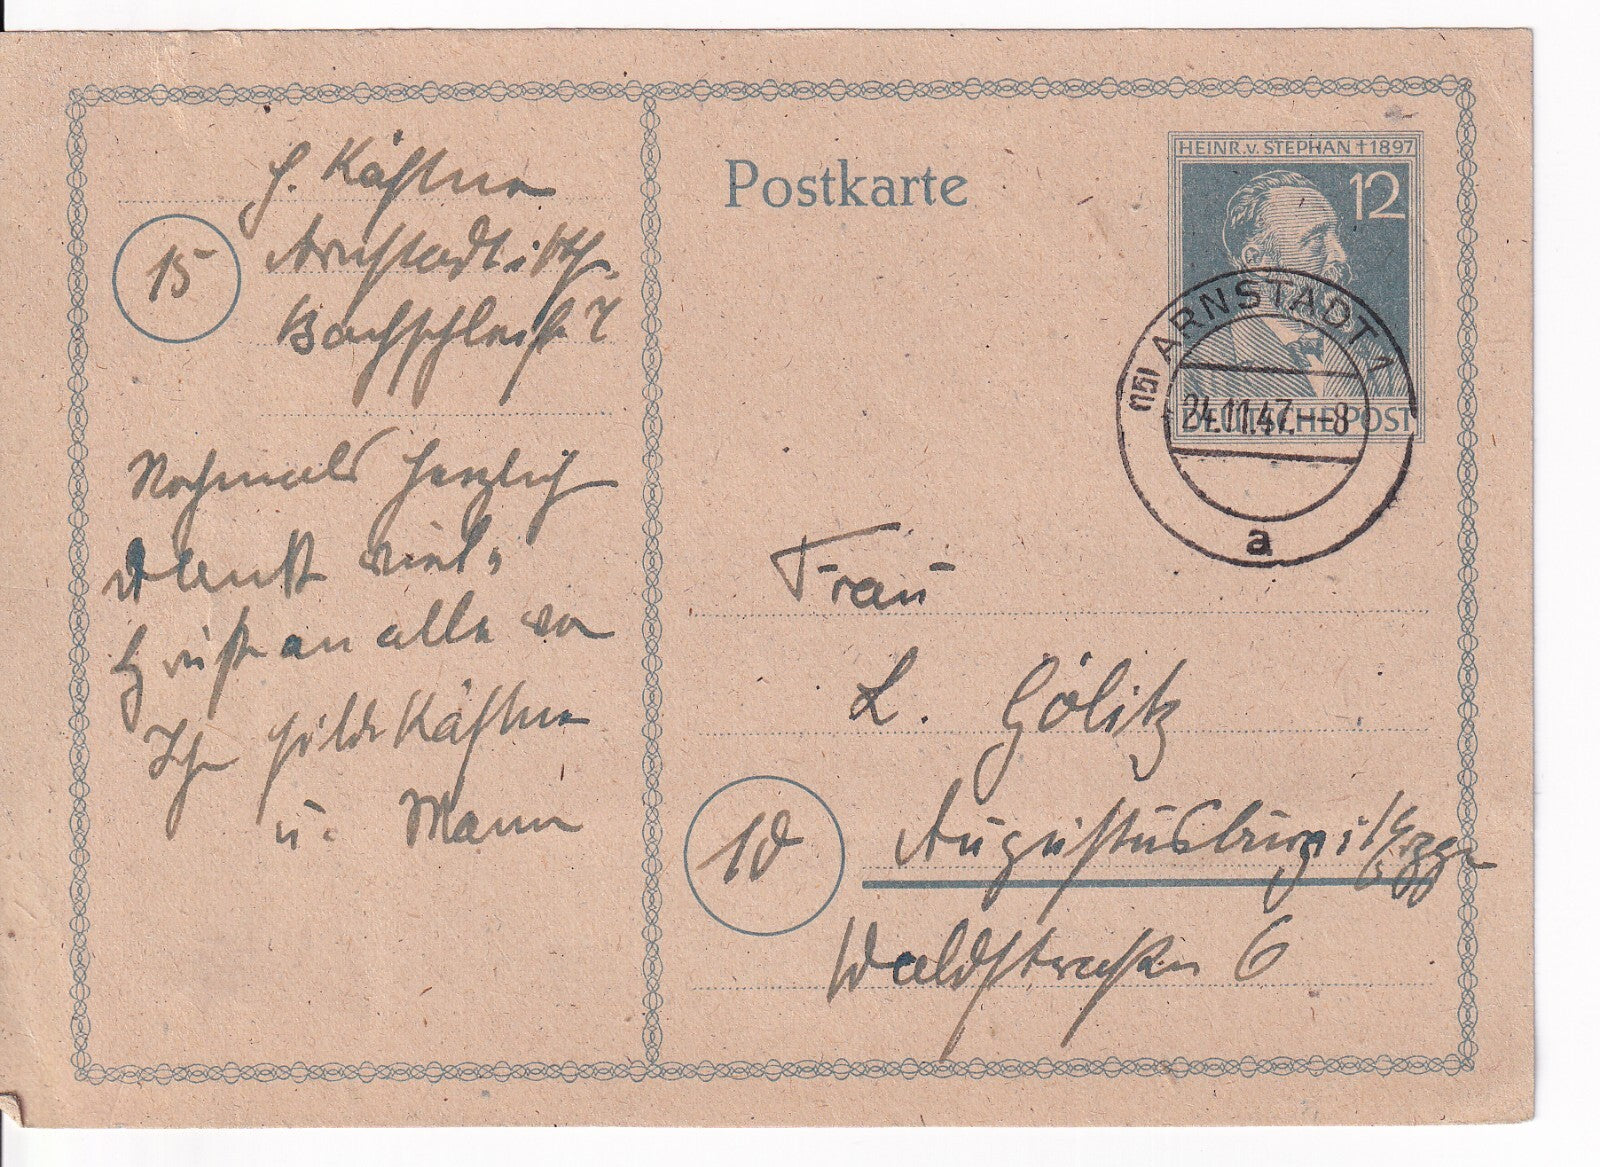 H. Kästner
15
Arnstadt i. Th.
Bachschleife 7
Nochmals herzlich
Dank viel.
Grüße an alle von
Ihr Hilde Kästner
u. Mann
Postkarte
HEINR. v. STEPHAN † 1897
12
DEUTSCHE POST
(15) ARNSTADT 1
24.11.47.-8
a
Frau
L. Gölitz
10
Augustusburg i. Erzgeb.
Waldstraße 6